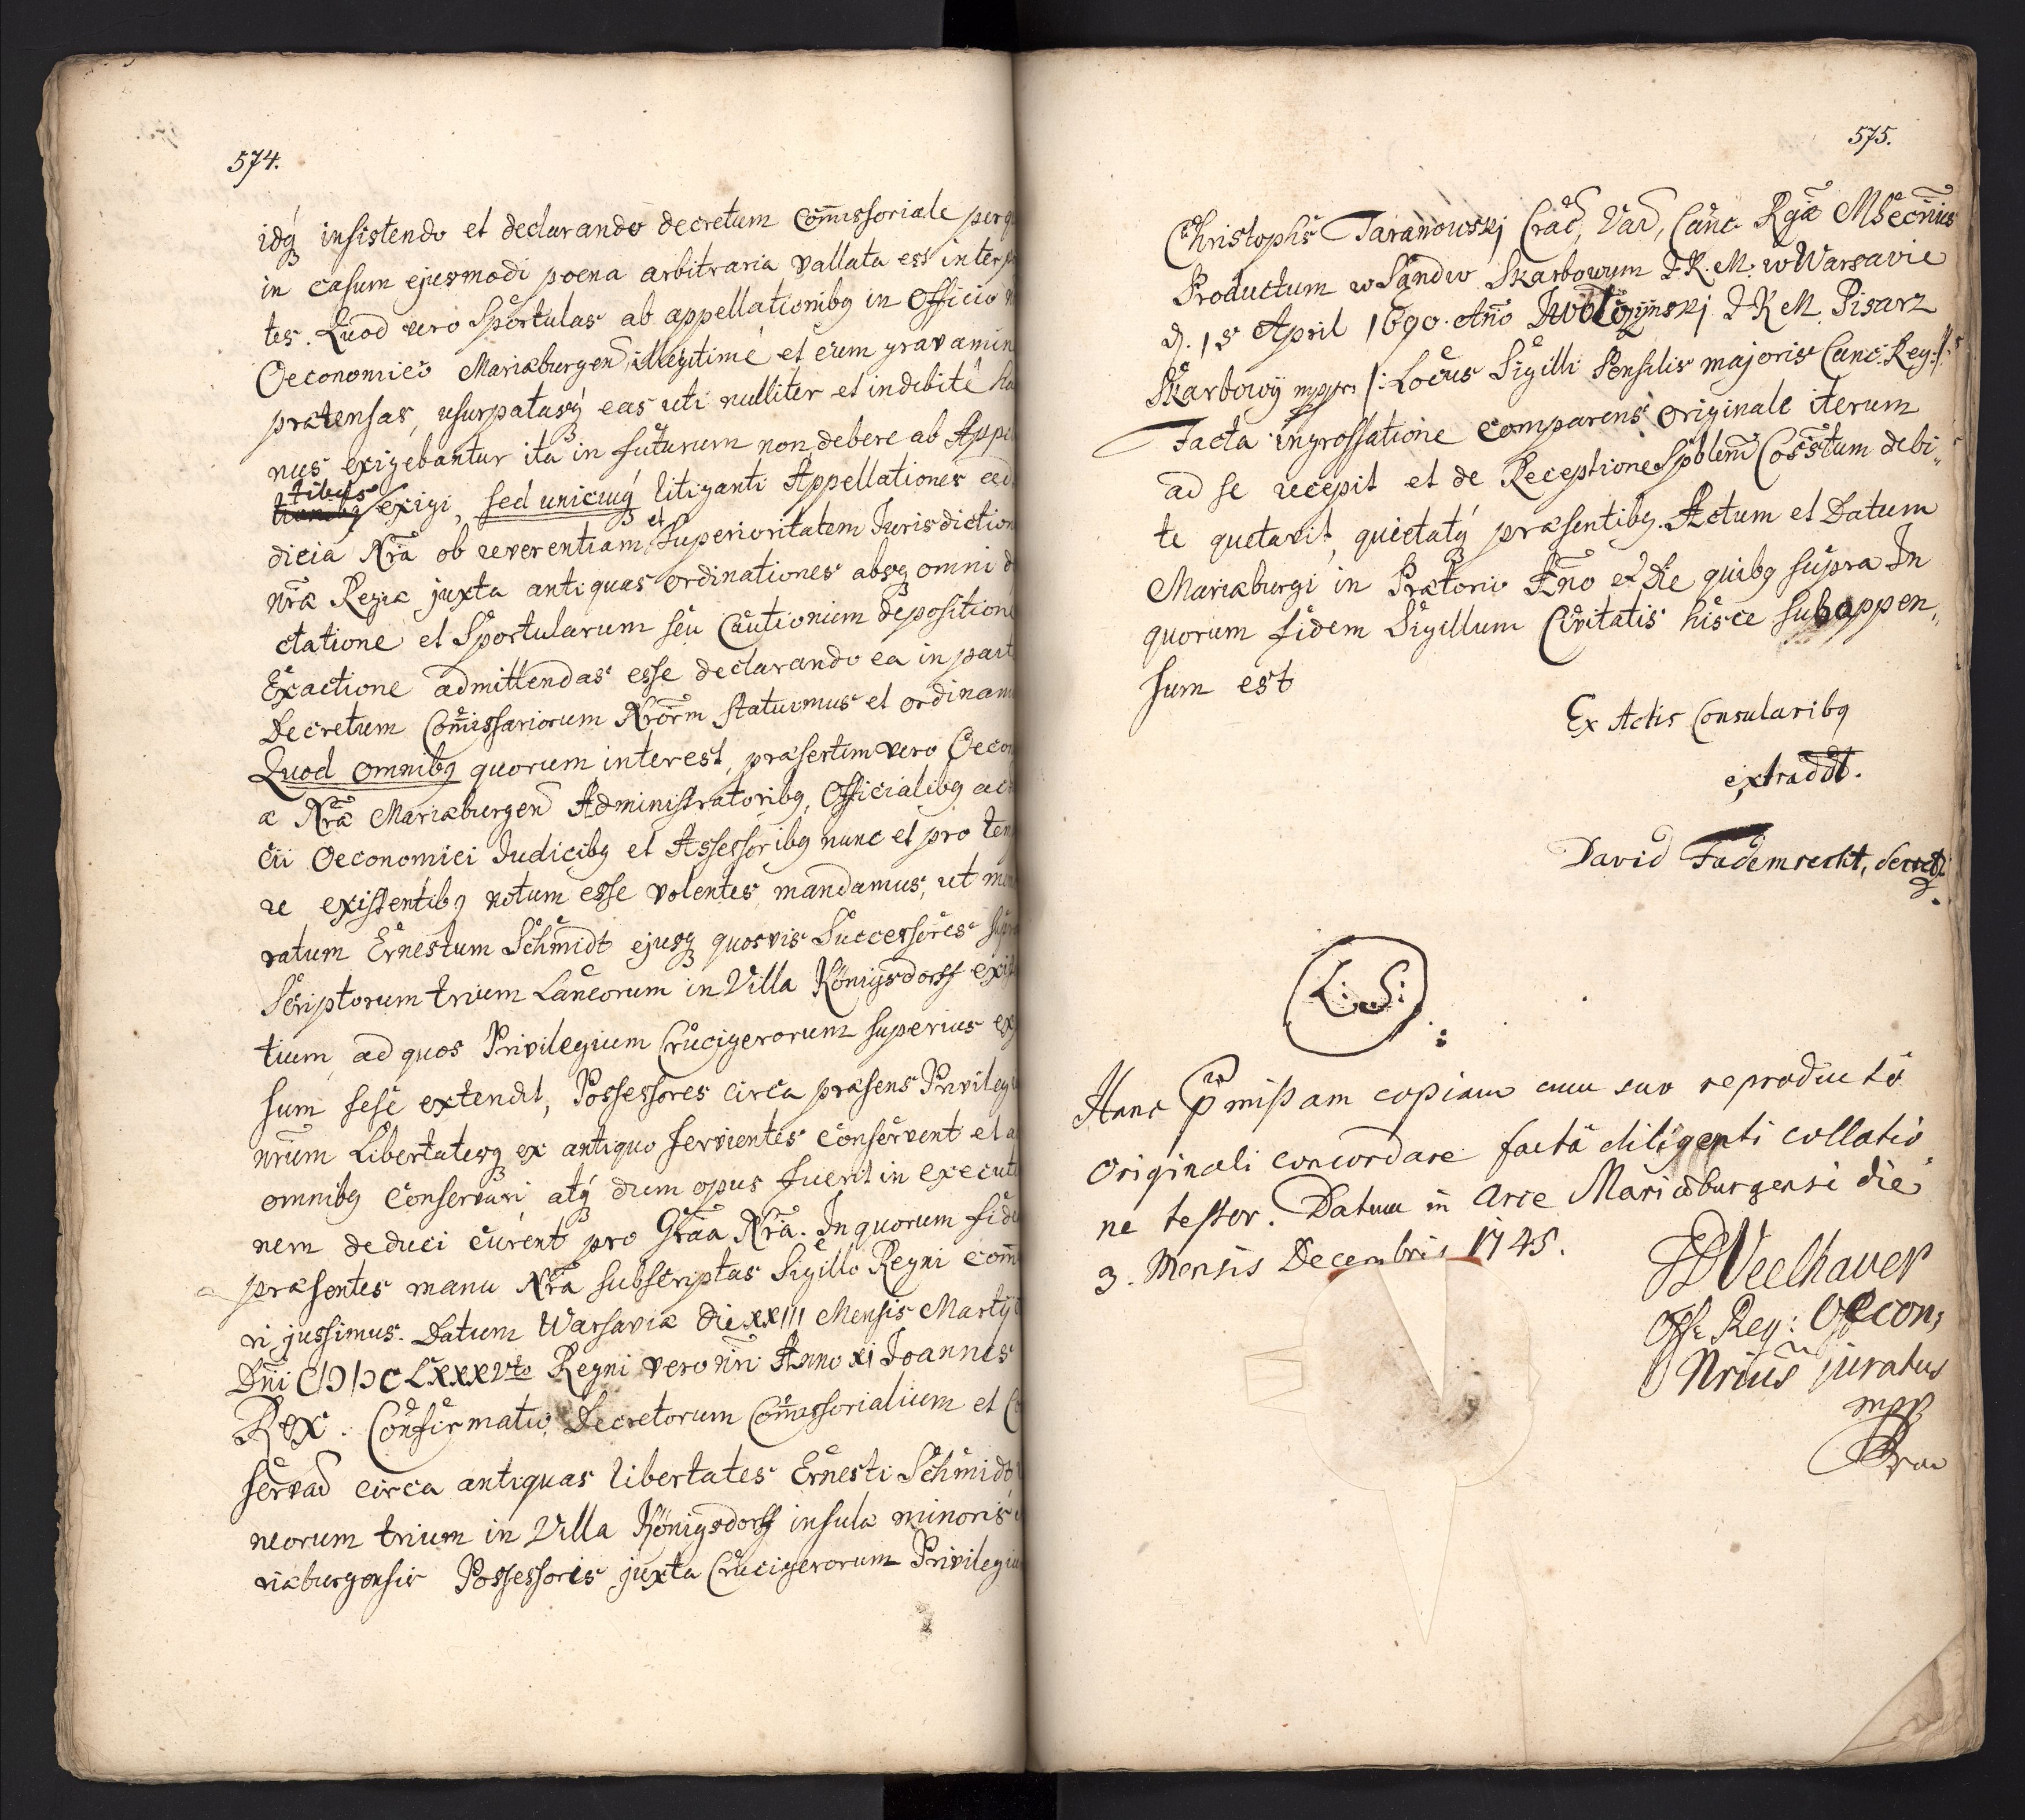 574.
idq́ insistendo et declarando decretum Com̄issoriale
in casum ejusmodi poena arbitraria vallata est inter
tes. Quod vero Sportulas ab appellationibq in Officio
Oeconomico Mariæburgen, illegitimé et cum gravamin
prætensas, usurpatasq́ eas uti nulliter et indebité
nus exigebantur ita in futurum non debere ab Appe
tibus
exigi, sed unicuiq́ litiganti Appellationes ad
dicia Nrā ob reverentiam et Superioritatem Jurisdiction
nrā Regiæ juxta antiquas ordinationes absq omni
ctatione et Sportularum seu Cautionum deposition
Exactione admittendas esse declarando ea in part
Decretum Com̄issariorum Nrōrm statuimus et ordinam
Quod omnibq quorum interest, præsertim vero Oecon
æ Nrǣ Mariæburgen Administratoribq, Officialibq ac
cii Oeconomici Judicibq et Assessoribq nunc et pro tem
re existentibq notum esse volentes, mandamus, ut
ratum Ernestum Schmidt ejusq quosvis Successores
Scriptorum trium Laneorum in Villa Königsdorff exis
tium, ad quos Privilegium Crucigerorum superius ex
sum sese extendit, Possessores circa præsens Privileg
nrūm Libertatesq ex antiquo servientes conservent et a
omnibq conservari, atq́ dum opus fuerit in executi
nem deduci curent pro Grāa Nrā. In quorum fide
præsentes manu Nrā subscriptas Sigillo Regni com̄
ri jussimus. Datum Warsaviæ die XXIII Mensis Martij
Dn̄i CIƆIƆC LXXXVto Regni vero nr̄i Anno XI Joannes
Rex. Confirmatio Decretorum Com̄issorialium et
servad circa antiquas libertates Ernesti Schmidt
neorum trium in Villa Königsdorff insulæ minoris
riæburgensis Possessoris juxta Crucigerorum Privilegiu
575.
Christophs Taranowskj Crac, Var, Canc Rgæ
Productum w Sąndw Skarbowym J.K.M. w Warsavie
d. 15 April 1690. Ano J.K.M. Pisarz
Skarbowÿ mppr. /: Locus Sigilli Pensilis majoris Canc. Reg:/.
Facta ingrossatione comparens originale iterum
ad se recepit et de Receptione debi„
te quetavit, quietatq́ præsentibq. Actum et Datum
Mariæburgi in Prætorio An̄o et Die quibq supra In
quorum fidem Sigillum Civitatis hisce subappen„
sum est
Ex Actis Consularibq
extraddt.
David Fademrecht, Secret:
L. S:
Hanc p̄missam copiam cum suo reproducto
originali concordare factâ diligenti collatio
ne testor. Datum in Arce Mariæburgensi die
3. Mensis Decembris 1745.
Veelhaver
Offi: Reg: Oecon:
Nrius juratus
mpp